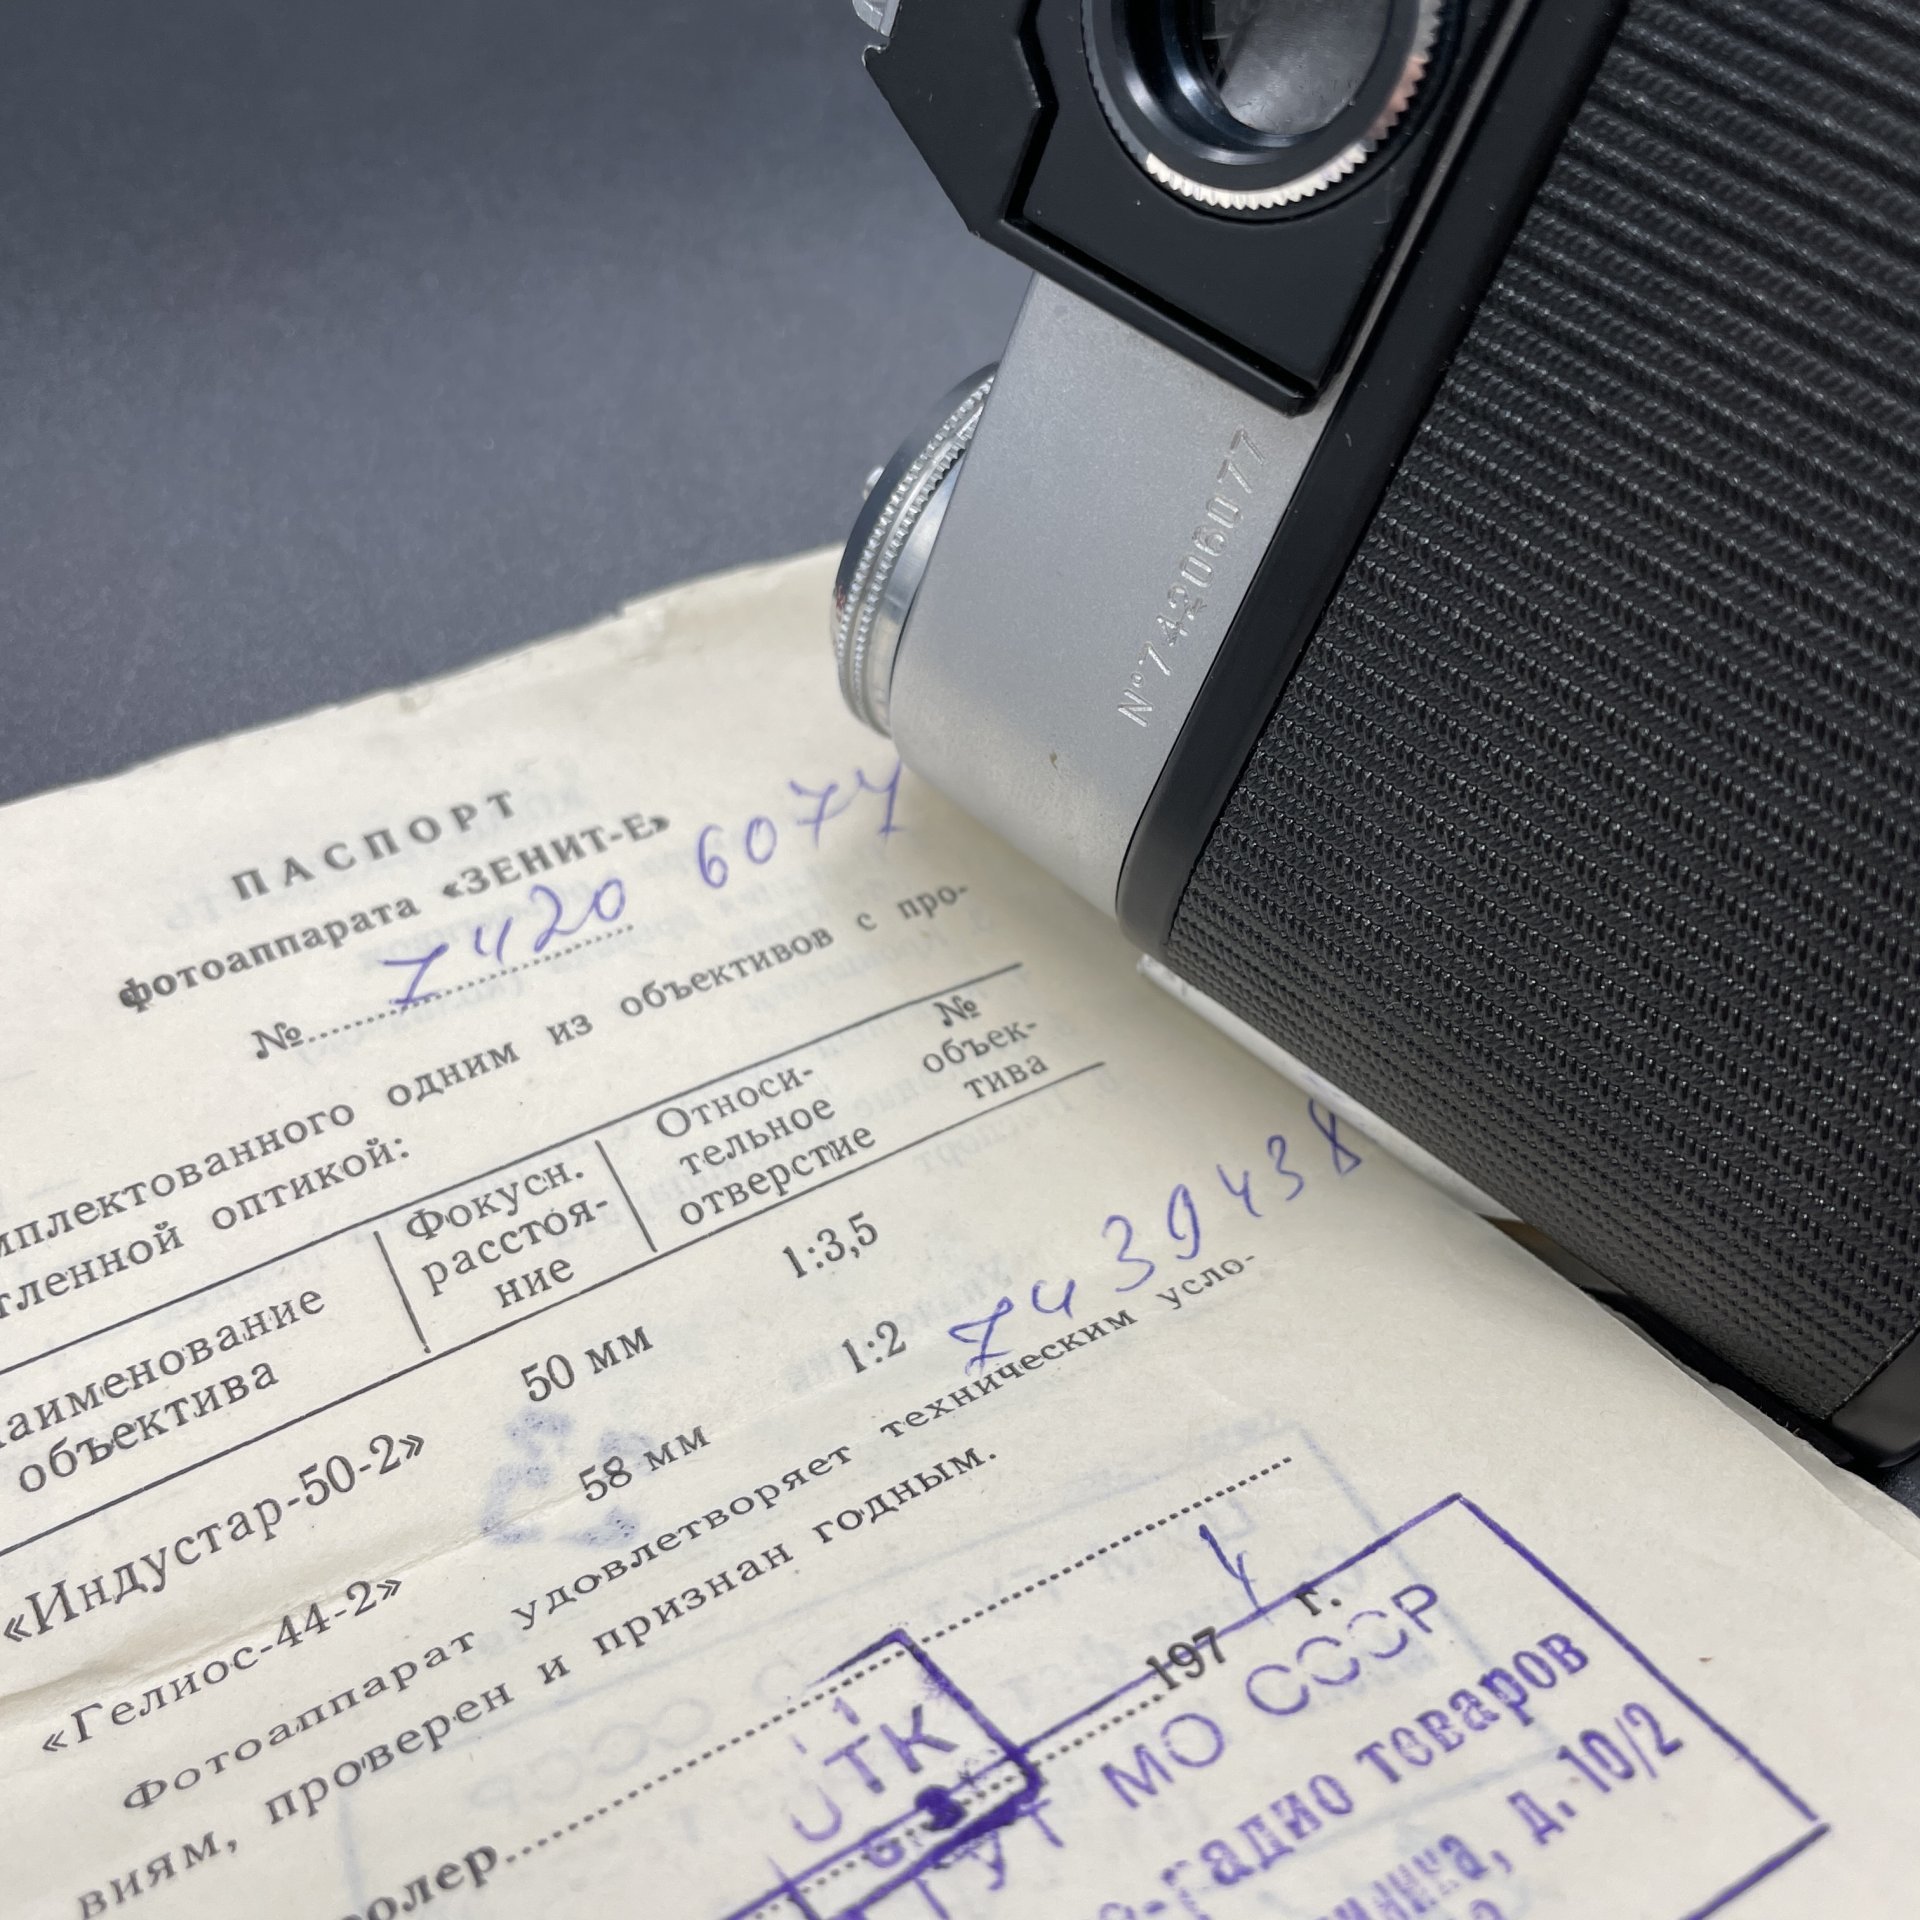 №74206077
ПАСПОРТ
фотоаппарата «ЗЕНИТ-Е»
№ 7420 6077
одним из объективов с про-
оптикой:
объектива
Фокусн. расстоя- ние
Относи- тельное отверстие
№ объек- тива
«Индустар-50-2» 50 мм 1:3,5
«Гелиос-44-2» 58 мм 1:2 7439438
Фотоаппарат удовлетворяет техническим усло-
виям, проверен и признан годным.
1974 г.
ОТК
МО СССР
товаров
д. 10/2